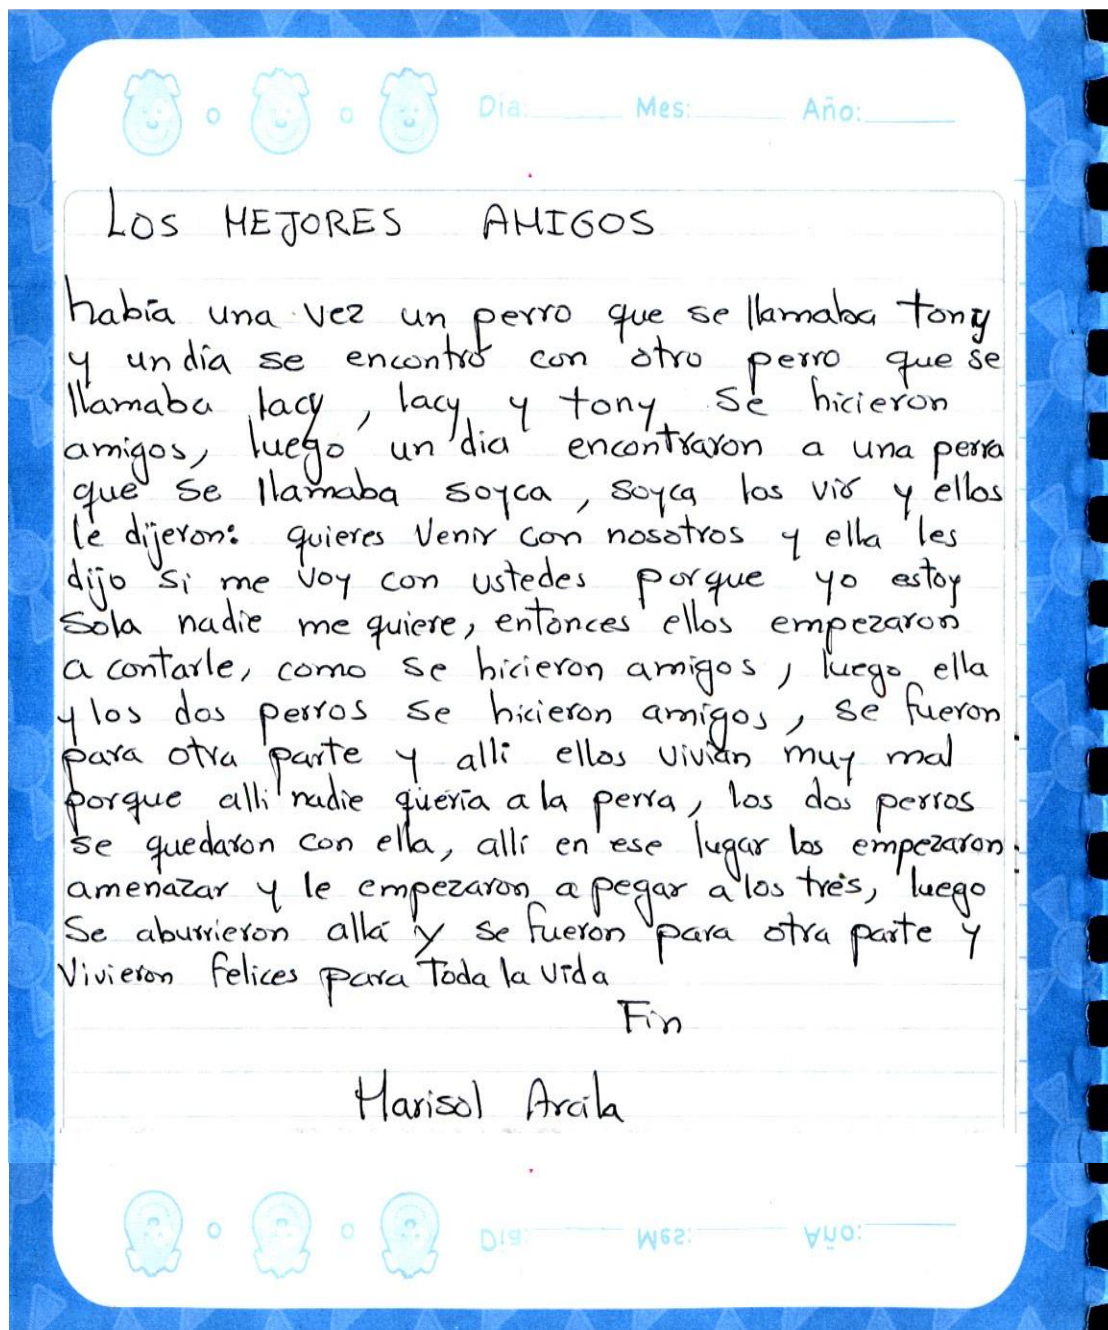 Día: Mes: Año:
LOS MEJORES AMIGOS
había una vez un perro que se llamaba tony
y un día se encontró con otro perro que se
llamaba lacy, lacy y tony se hicieron
amigos, luego un día encontraron a una perra
que se llamaba soyca, soyca los vio y ellos
le dijeron: quieres venir con nosotros y ella les
dijo si me voy con ustedes porque yo estoy
sola nadie me quiere, entonces ellos empezaron
a contarle, como se hicieron amigos, luego ella
y los dos perros se hicieron amigos, se fueron
para otra parte y alli ellos vivían muy mal
porque alli nadie quería a la perra, los dos perros
se quedaron con ella, allí en ese lugar los empezaron
amenazar y le empezaron a pegar a los tres, luego
se aburrieron allá y se fueron para otra parte y
Vivieron felices para Toda la vida
Fin
Marisol Arcila
Día: Mes: Año: